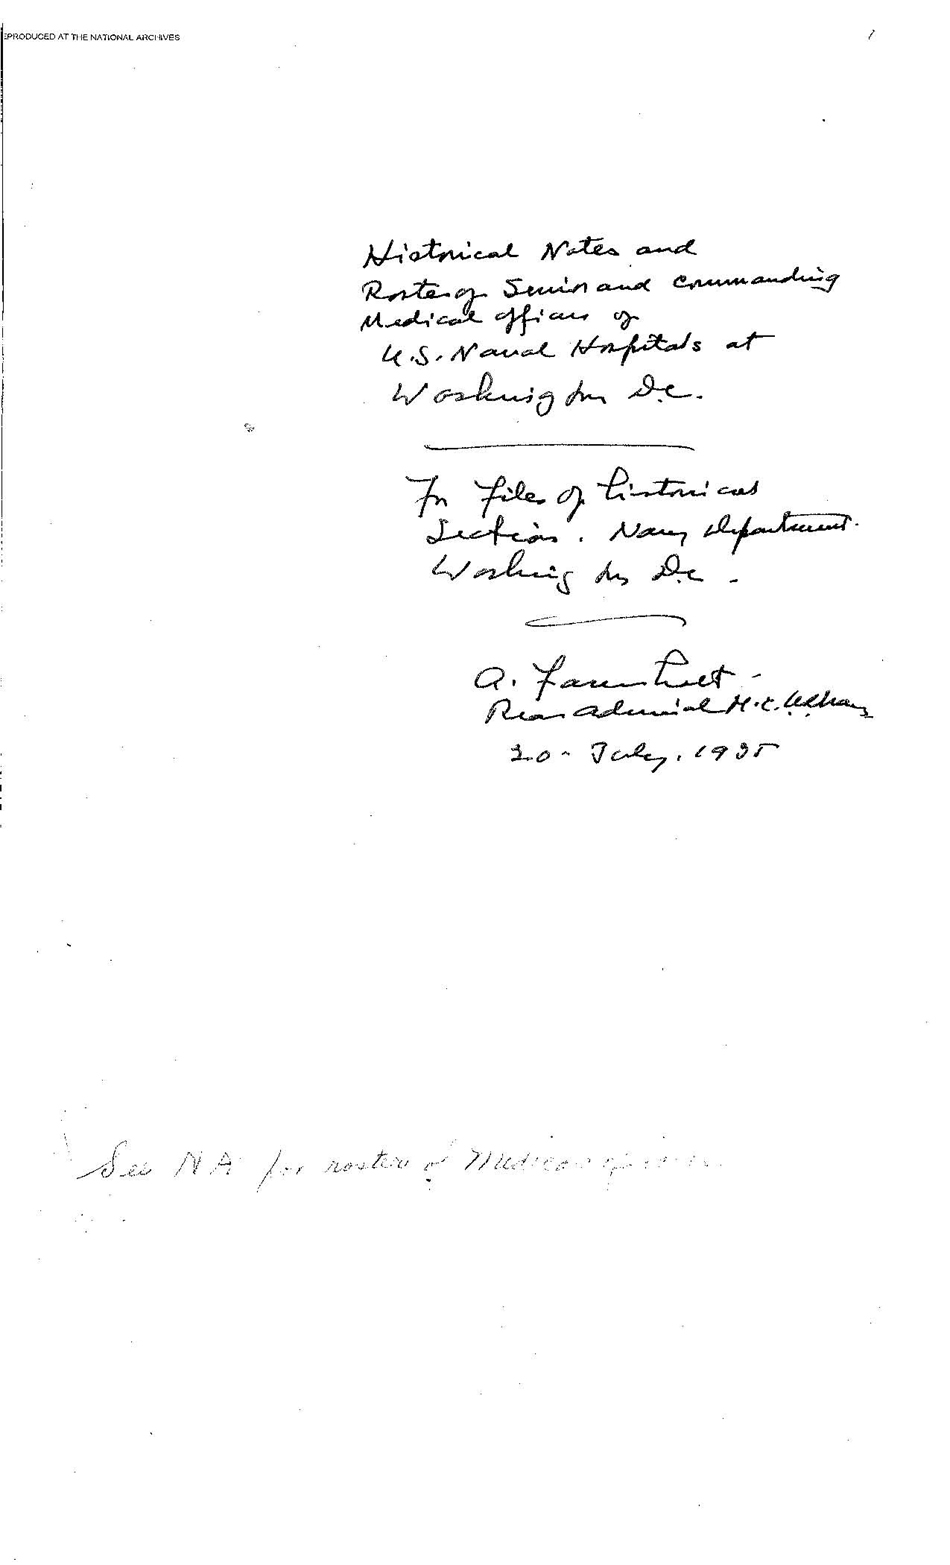 EPRODUCED AT THE NATIONAL ARCHIVES
1
Historical Notes and
Roster of Senior and Commanding
Medical Officers of
U.S. Naval Hospitals at
Washington D.C.
In Files of Historical
Section. Navy Department.
Washington D.C.
A. Farenholt -
Rear Admiral M.C. U.S. Navy
20 - July, 1935
See N A for rosters of Medical officers